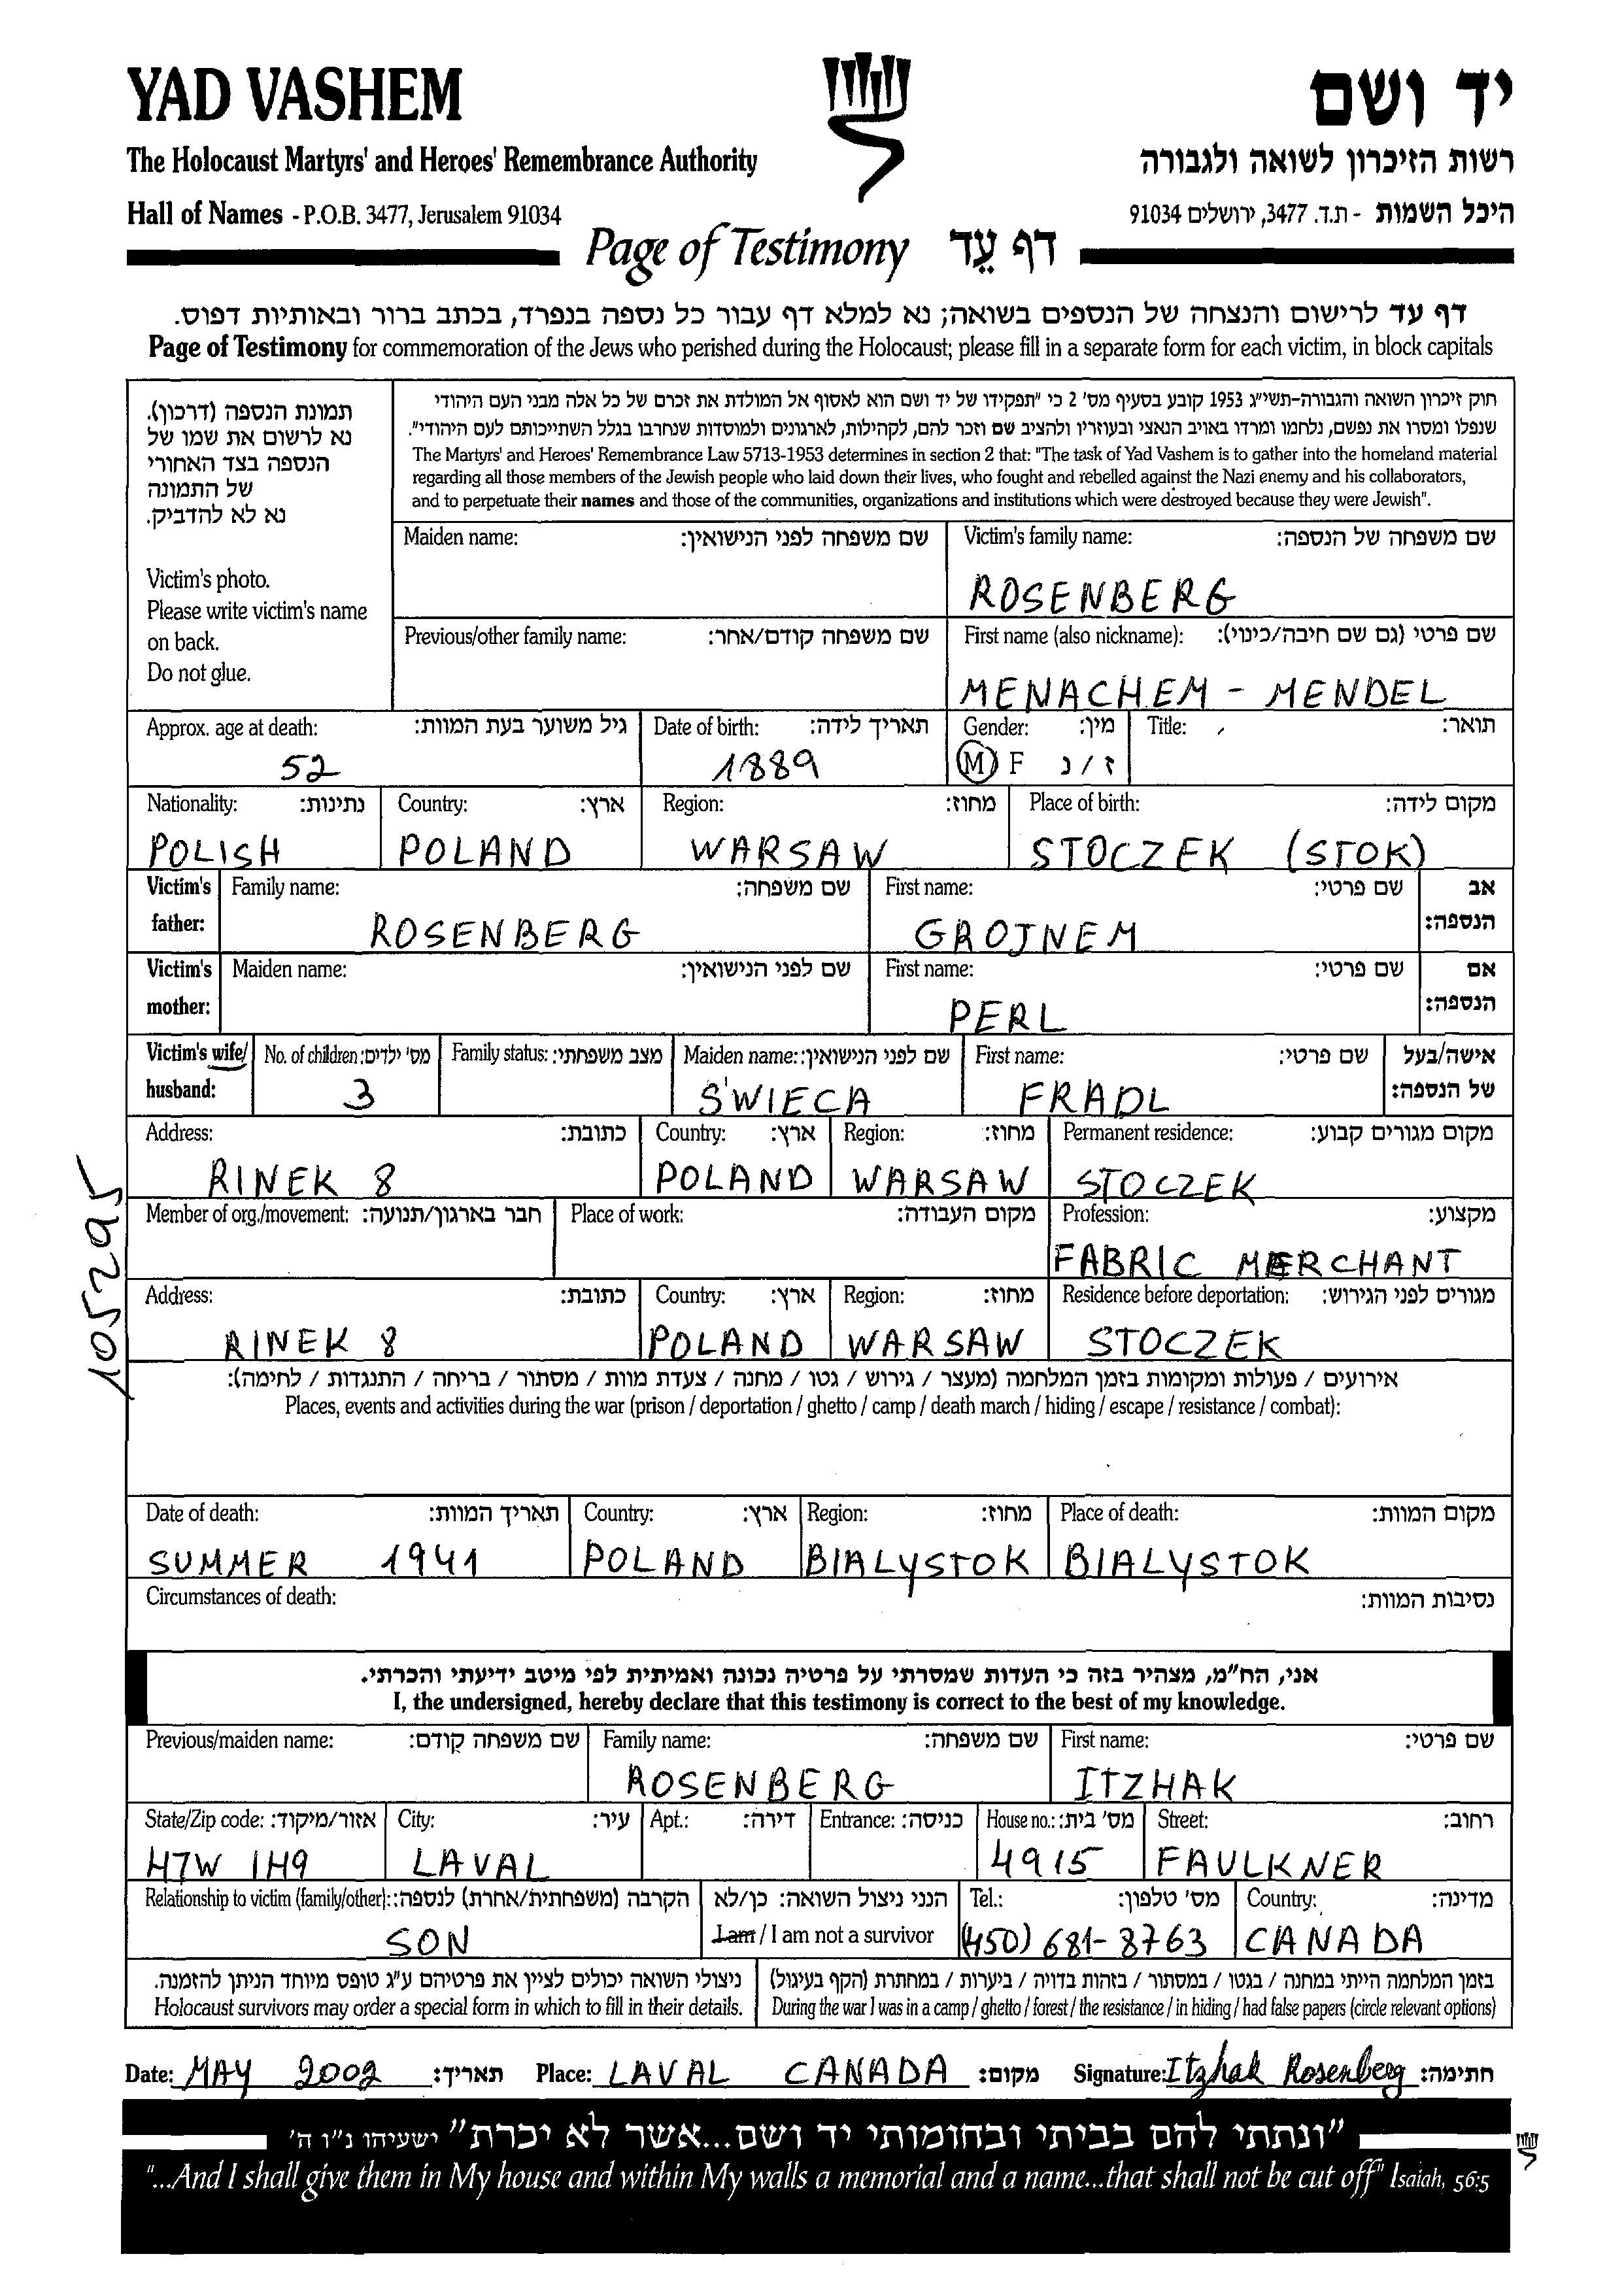 YAD VASHEM
יד ושם
The Holocaust Martyrs' and Heroes' Remembrance Authority
רשות הזיכרון לשואה ולגבורה
Hall of Names - P.O.B. 3477, Jerusalem 91034
היכל השמות - ת.ד. 3477, ירושלים 91034
Page of Testimony דף עֵד
דף עד לרישום והנצחה של הנספים בשואה; נא למלא דף עבור כל נספה בנפרד, בכתב ברור ובאותיות דפוס.
Page of Testimony for commemoration of the Jews who perished during the Holocaust; please fill in a separate form for each victim, in block capitals
תמונת הנספה (דרכון).
נא לרשום את שמו של
הנספה בצד האחורי
של התמונה
נא לא להדביק.
Victim's photo.
Please write victim's name
on back.
Do not glue.
חוק זיכרון השואה והגבורה-תשי"ג 1953 קובע בסעיף מס' 2 כי "תפקידו של יד ושם הוא לאסוף אל המולדת את זכרם של כל אלה מבני העם היהודי
שנפלו ומסרו את נפשם, נלחמו ומרדו באויב הנאצי ובעוזריו ולהציב שם וזכר להם, לקהילות, לארגונים ולמוסדות שנחרבו בגלל השתייכותם לעם היהודי".
The Martyrs' and Heroes' Remembrance Law 5713-1953 determines in section 2 that: "The task of Yad Vashem is to gather into the homeland material
regarding all those members of the Jewish people who laid down their lives, who fought and rebelled against the Nazi enemy and his collaborators,
and to perpetuate their names and those of the communities, organizations and institutions which were destroyed because they were Jewish".
Maiden name: שם משפחה לפני הנישואין:
Victim's family name: שם משפחה של הנספה:
ROSENBERG
Previous/other family name: שם משפחה קודם/אחר:
First name (also nickname): שם פרטי (גם שם חיבה/כינוי):
MENACHEM - MENDEL
Approx. age at death: גיל משוער בעת המוות:
52
Date of birth: תאריך לידה:
1889
Gender: מין:
M F ז / נ
Title: תואר:
Nationality: נתינות:
POLISH
Country: ארץ:
POLAND
Region: מחוז:
WARSAW
Place of birth: מקום לידה:
STOCZEK (STOK)
Victim's father:
Family name: שם משפחה:
ROSENBERG
First name: שם פרטי:
GROJNEM
אב הנספה:
Victim's mother:
Maiden name: שם לפני הנישואין:
First name: שם פרטי:
PERL
אם הנספה:
Victim's wife/
husband:
No. of children: מס' ילדים:
3
Family status: מצב משפחתי:
Maiden name: שם לפני הנישואין:
ŚWIECA
First name: שם פרטי:
FRADL
אישה/בעל
של הנספה:
Address: כתובת:
RINEK 8
Country: ארץ:
POLAND
Region: מחוז:
WARSAW
Permanent residence: מקום מגורים קבוע:
STOCZEK
Member of org./movement: חבר בארגון/תנועה:
Place of work: מקום העבודה:
Profession: מקצוע:
FABRIC MERCHANT
Address: כתובת:
RINEK 8
Country: ארץ:
POLAND
Region: מחוז:
WARSAW
Residence before deportation: מגורים לפני הגירוש:
STOCZEK
105295
אירועים / פעולות ומקומות בזמן המלחמה (מעצר / גירוש / גטו / מחנה / צעדת מוות / מסתור / בריחה / התנגדות / לחימה):
Places, events and activities during the war (prison / deportation / ghetto / camp / death march / hiding / escape / resistance / combat):
Date of death: תאריך המוות:
SUMMER 1941
Country: ארץ:
POLAND
Region: מחוז:
BIALYSTOK
Place of death: מקום המוות:
BIALYSTOK
Circumstances of death: נסיבות המוות:
אני, הח"מ, מצהיר בזה כי העדות שמסרתי על פרטיה נכונה ואמיתית לפי מיטב ידיעתי והכרתי.
I, the undersigned, hereby declare that this testimony is correct to the best of my knowledge.
Previous/maiden name: שם משפחה קודם:
Family name: שם משפחה:
ROSENBERG
First name: שם פרטי:
ITZHAK
State/Zip code: אזור/מיקוד:
H7W 1H9
City: עיר:
LAVAL
Apt.: דירה:
Entrance: כניסה:
House no.: מס' בית:
4915
Street: רחוב:
FAULKNER
Relationship to victim (family/other): הקרבה (משפחתית/אחרת) לנספה:
SON
הנני ניצול השואה: כן/לא
I am / I am not a survivor
Tel.: מס' טלפון:
(450) 681-8763
Country: מדינה:
CANADA
ניצולי השואה יכולים לציין את פרטיהם ע"ג טופס מיוחד הניתן להזמנה.
Holocaust survivors may order a special form in which to fill in their details.
בזמן המלחמה הייתי במחנה / בגטו / במסתור / בזהות בדויה / ביערות / במחתרת (הקף בעיגול)
During the war I was in a camp / ghetto / forest / the resistance / in hiding / had false papers (circle relevant options)
Date: MAY 2002 תאריך: Place: LAVAL CANADA מקום: Signature: Itzhak Rosenberg חתימה:
"ונתתי להם בביתי ובחומותי יד ושם...אשר לא יכרת" ישעיהו נ"ו ה'
"...And I shall give them in My house and within My walls a memorial and a name...that shall not be cut off" Isaiah, 56:5